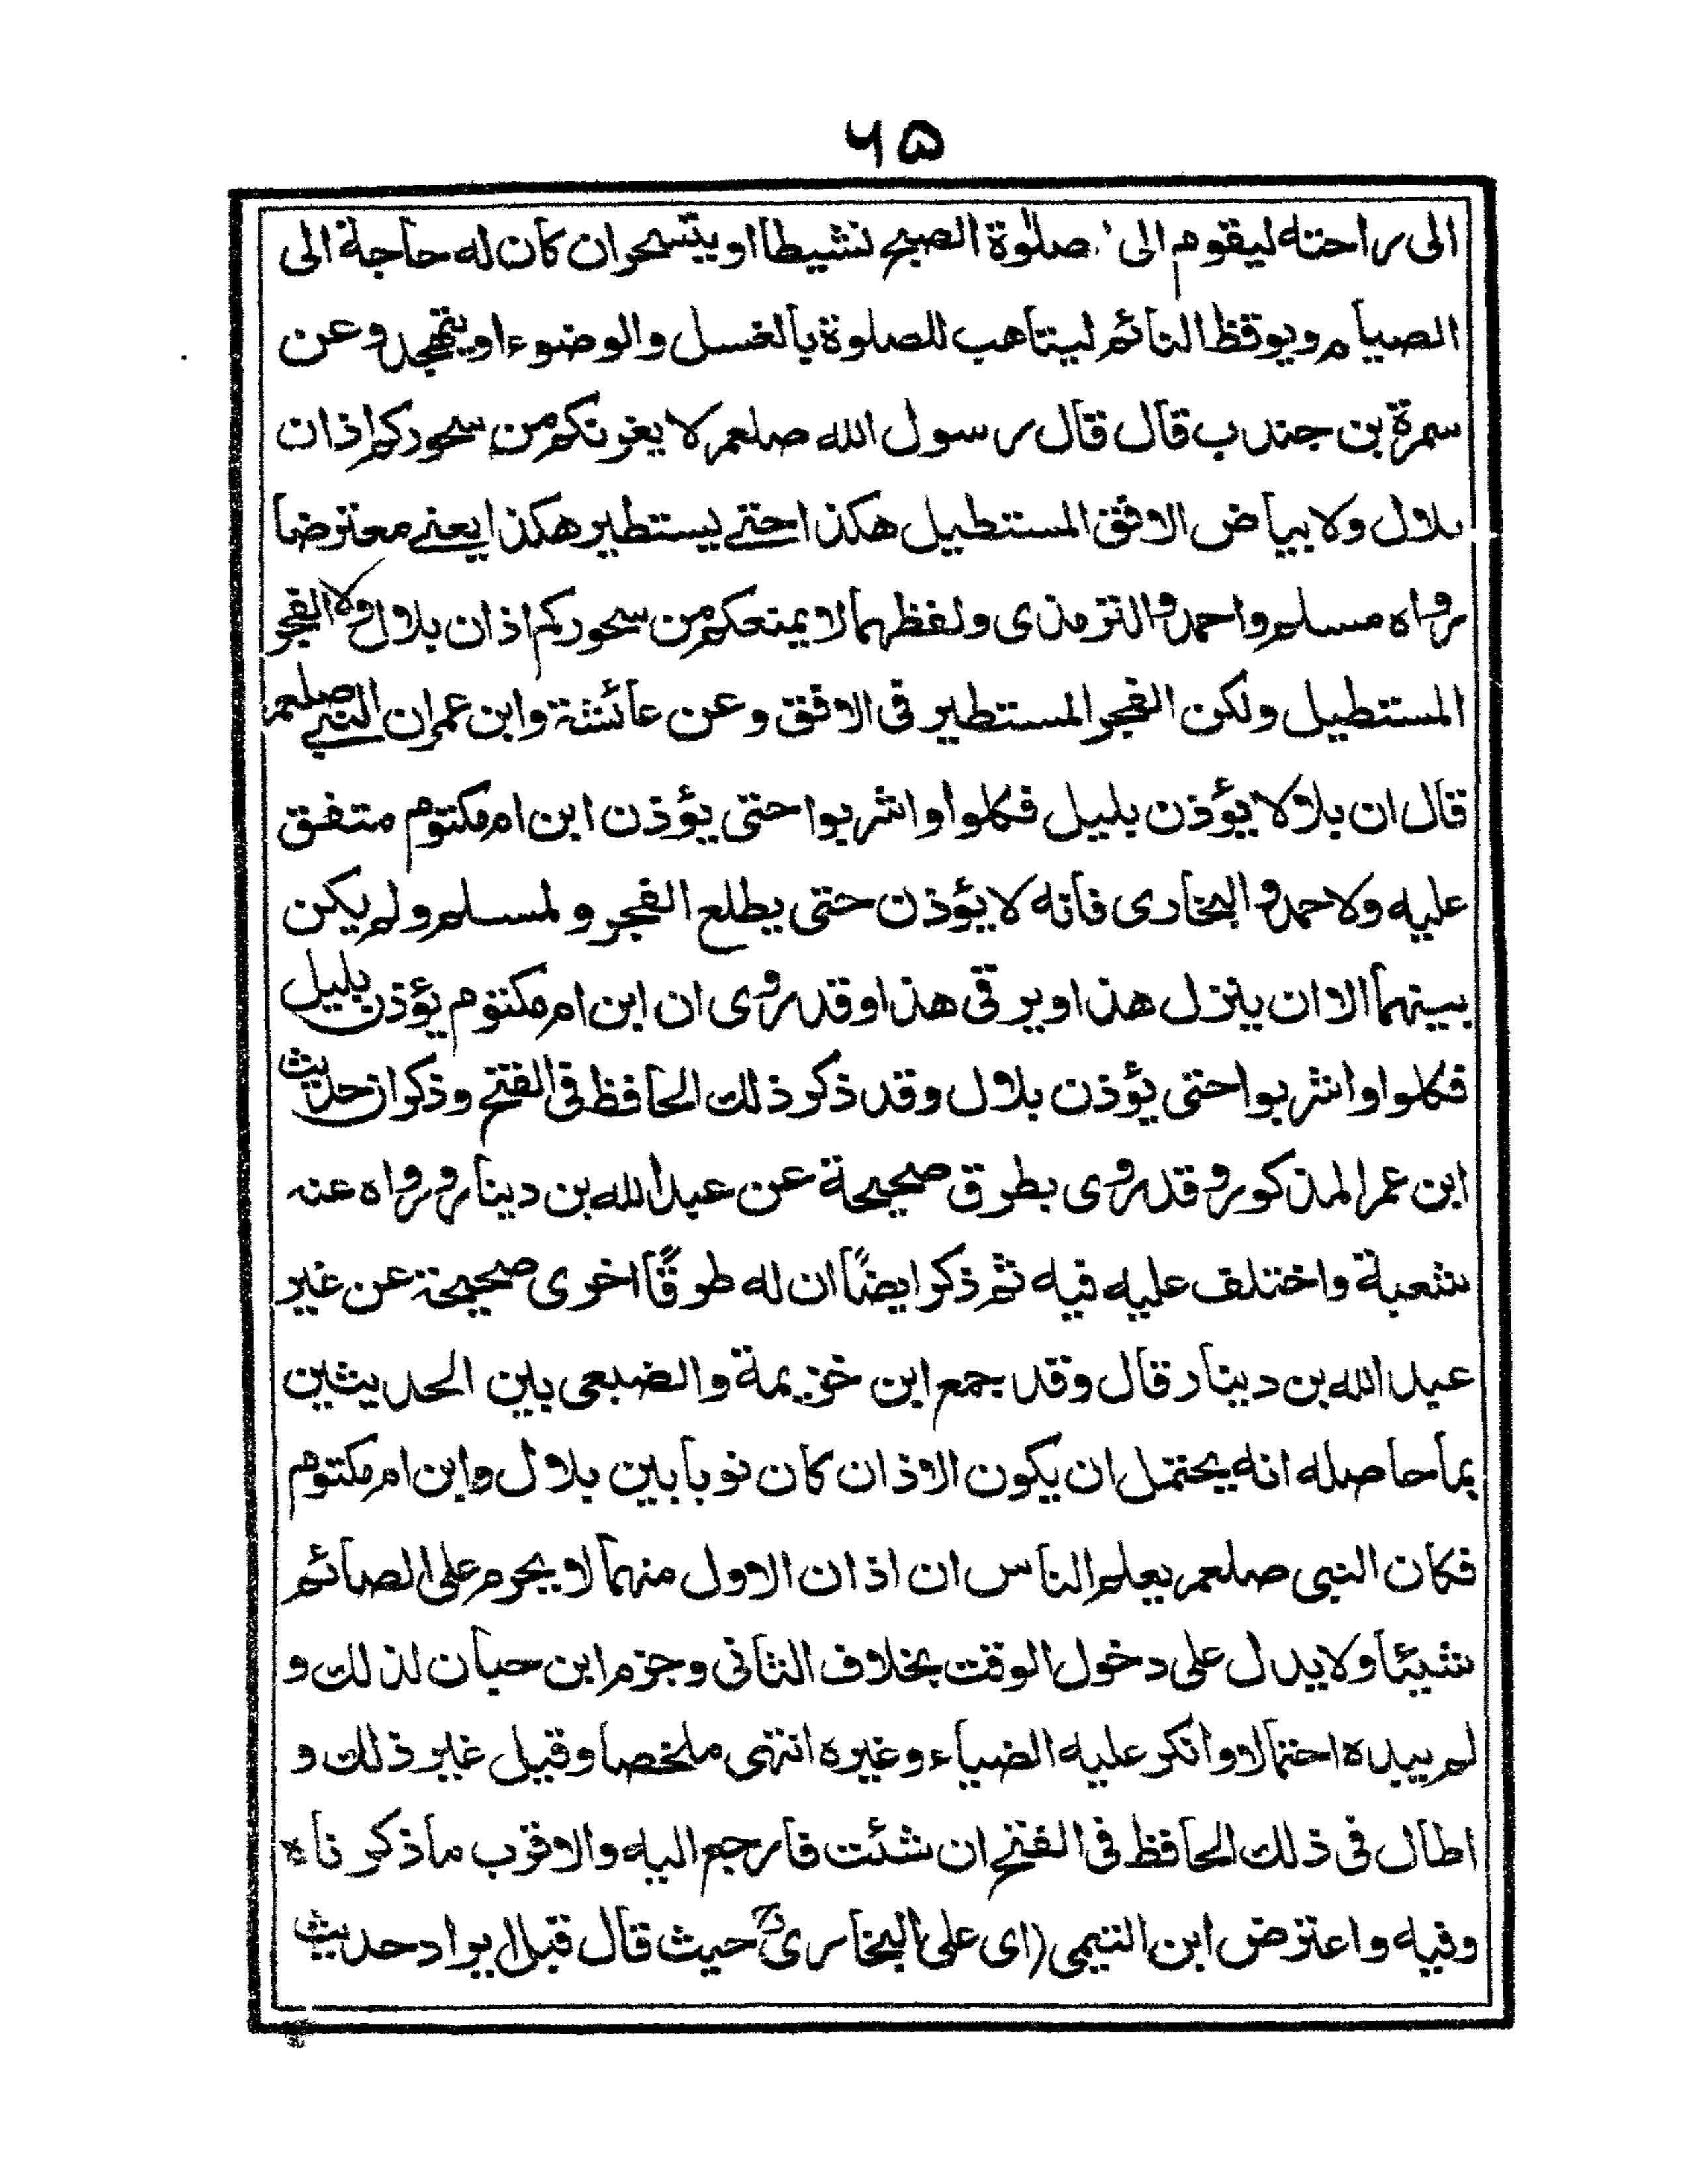 ۶۵
الى راحته ليقوم الى صلوة الصبح نشيطا او يتسحر ان كان له حاجة الى
الصيام ويوقظ النائم ليتاهب للصلوة بالغسل والوضوء او يتهجد وعن
سمرة بن جندب قال قال رسول الله صلعم لا يغرنكم من سحوركم اذان
بلال ولا بياض الافق المستطيل هكذا حتى يستطير هكذا يعنى معترضا
رواه مسلم واحمد والترمذى ولفظهما لا يمنعكم من سحوركم اذان بلال ولا الفجر
المستطيل ولكن الفجر المستطير فى الافق وعن عائشة وابن عمران النبى صلعم
قال ان بلالا يؤذن بليل فكلوا واشربوا حتى يؤذن ابن ام مكتوم متفق
عليه ولاحمد والبخارى فانه لا يؤذن حتى يطلع الفجر ولمسلم ولم يكن
بينهما الا ان ينزل هذا ويرقى هذا وقد روى ان ابن ام مكتوم يؤذن بليل
فكلوا واشربوا حتى يؤذن بلال وقد ذكر ذلك الحافظ فى الفتح وذكر ان حديث
ابن عمر المذكور وقد روى بطرق صحيحة عن عبد الله بن دينار ورواه عنه
شعبة واختلف عليه فيه ثم ذكر ايضًا ان له طرقًا اخرى صحيحة عن غير
عبد الله بن دينار قال وقد جمع ابن خزيمة والضبعى بين الحديثين
بما حاصله انه يحتمل ان يكون الاذان كان نوبا بين بلال وابن ام مكتوم
فكان النبى صلعم يعلم الناس ان اذان الاول منهما لا يحرم على الصائم
شيئا ولا يدل على دخول الوقت بخلاف الثانى وجزم ابن حبان لذلك و
لم يبده احتمالا وانكر عليه الضياء وغيره انتهى ملخصا وقيل غير ذلك و
اطال فى ذلك الحافظ فى الفتح ان شئت فارجع اليه والاقرب ما ذكرناه
وفيه واعترض ابن التيمى (اى على البخارىؒ) حيث قال قبل ايراد حديث